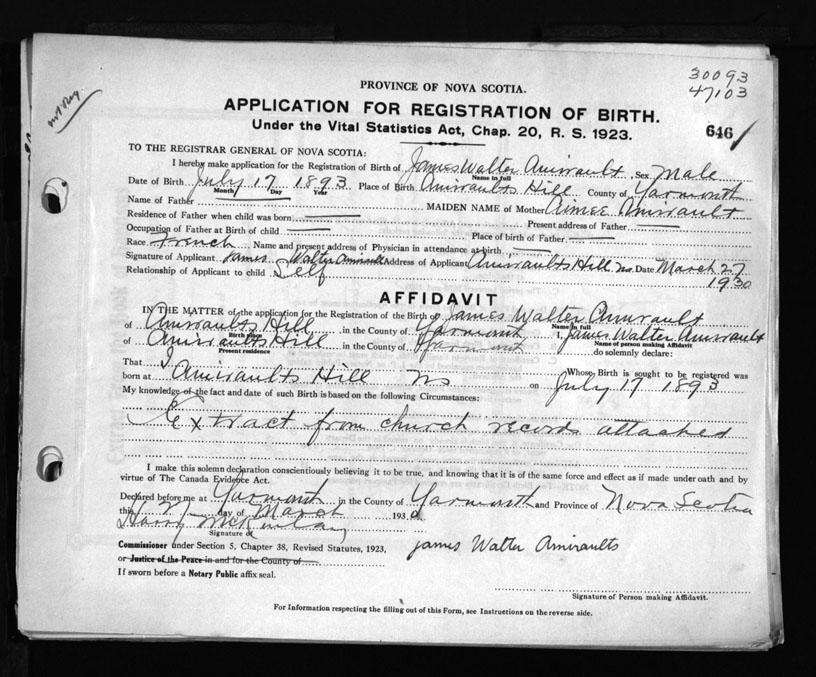 30093
47103
PROVINCE OF NOVA SCOTIA.
APPLICATION FOR REGISTRATION OF BIRTH.
Under the Vital Statistics Act, Chap. 20, R. S. 1923.
646
TO THE REGISTRAR GENERAL OF NOVA SCOTIA:
I hereby make application for the Registration of Birth of James Walter Amirault Sex Male
Name in full
Date of Birth July 17 1893 Place of Birth Amiraults Hill County of Yarmouth
Month Day Year
Name of Father MAIDEN NAME of Mother Aimee Amirault
Residence of Father when child was born Present address of Father
Occupation of Father at Birth of child Place of birth of Father
Race French Name and present address of Physician in attendance at birth
Signature of Applicant James Walter Amirault Address of Applicant Amiraults Hill NS Date March 27
Relationship of Applicant to child Self 1930
AFFIDAVIT
IN THE MATTER of the application for the Registration of the Birth of James Walter Amirault
Name in full
of Amiraults Hill, in the County of Yarmouth I, James Walter Amirault
Birth place Name of person making Affidavit
of Amiraults Hill, in the County of Yarmouth do solemnly declare:
Present residence
That I Whose Birth is sought to be registered was
born at Amiraults Hill NS on July 17 1893
My knowledge of the fact and date of such Birth is based on the following Circumstances:
Extract from church records attached
I make this solemn declaration conscientiously believing it to be true, and knowing that it is of the same force and effect as if made under oath and by
virtue of The Canada Evidence Act.
Declared before me at Yarmouth in the County of Yarmouth and Province of Nova Scotia
this 27 day of March 1930
Harry McKinlay
Signature of
Commissioner under Section 5, Chapter 38, Revised Statutes, 1923, James Walter Amiraults
or Justice of the Peace in and for the County of
If sworn before a Notary Public affix seal.
Signature of Person making Affidavit.
For Information respecting the filling out of this Form, see Instructions on the reverse side.